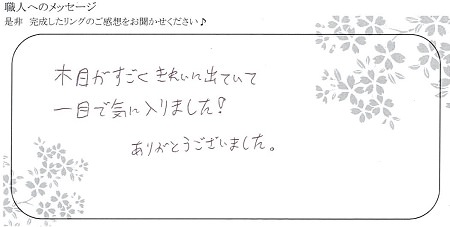 職人へのメッセージ
是非　完成したリングのご感想をお聞かせください♪
木目がすごくきれいに出ていて
一目で気に入りました！
ありがとうございました。